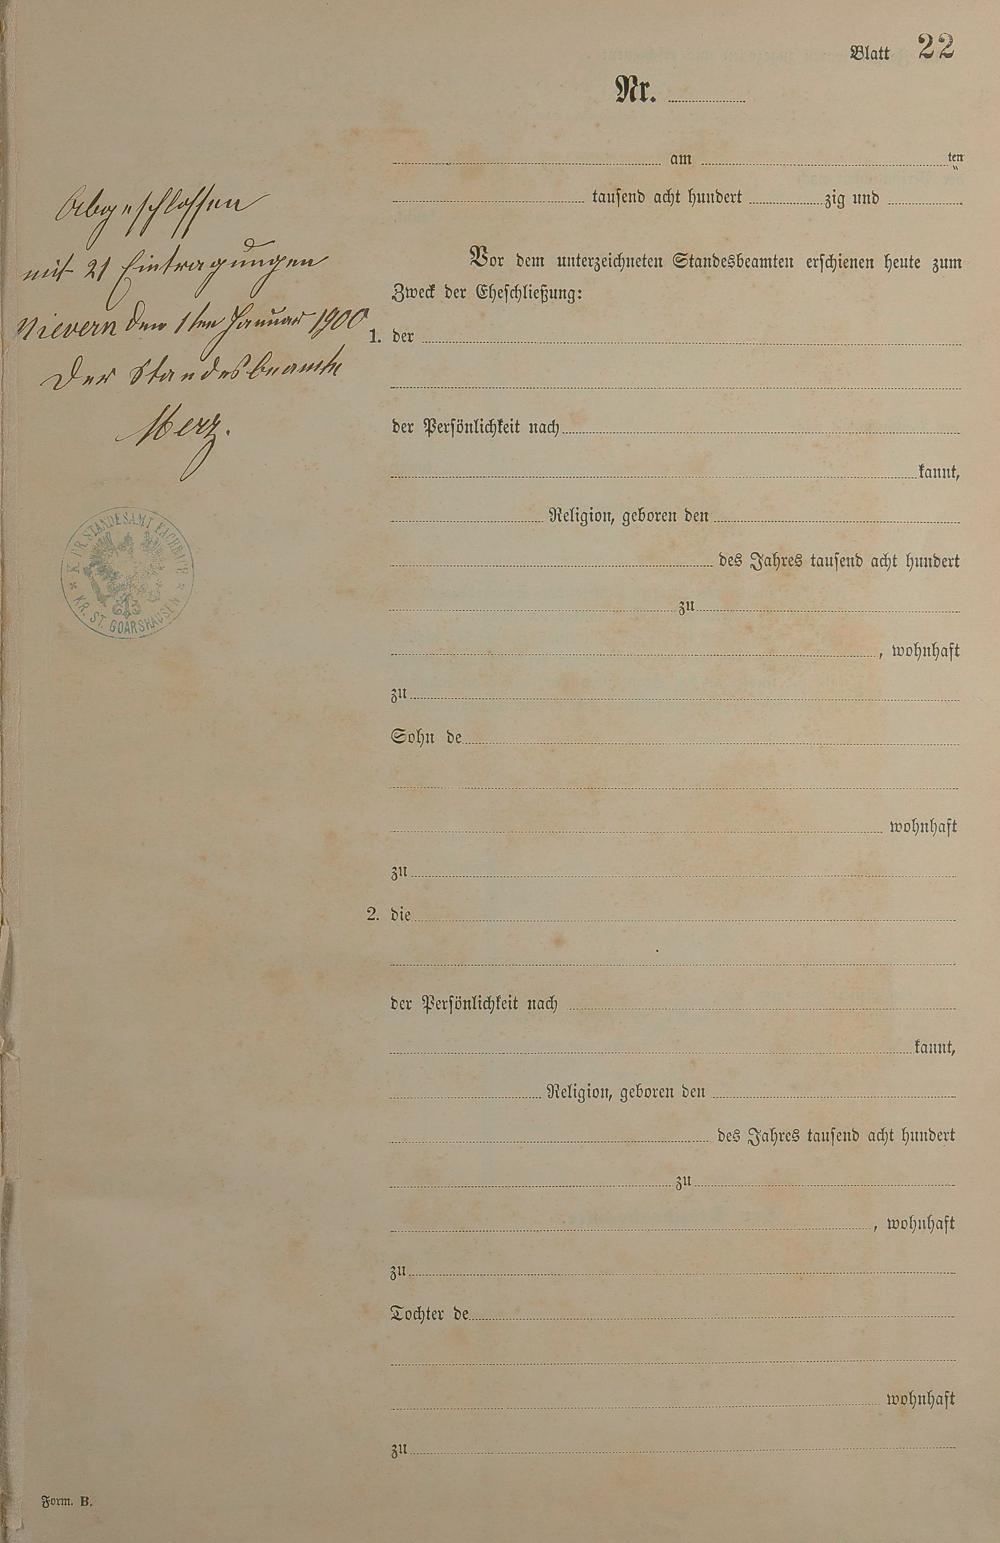 Blatt 22
Nr.
am ten
tausend acht hundert zig und
Abgeschlossen
mit 21 Eintragungen
Nievern den 1ten Januar 1900
Der Standesbeamte
Merz.
K. PR. STANDESAMT FACHBACH
* KR. ST. GOARSHAUSEN *
Vor dem unterzeichneten Standesbeamten erschienen heute zum
Zweck der Eheschließung:
1. der
der Persönlichkeit nach
kannt,
Religion, geboren den
des Jahres tausend acht hundert
zu
, wohnhaft
zu
Sohn de
wohnhaft
zu
2. die
der Persönlichkeit nach
kannt,
Religion, geboren den
des Jahres tausend acht hundert
zu
, wohnhaft
zu
Tochter de
wohnhaft
zu
Form. B.